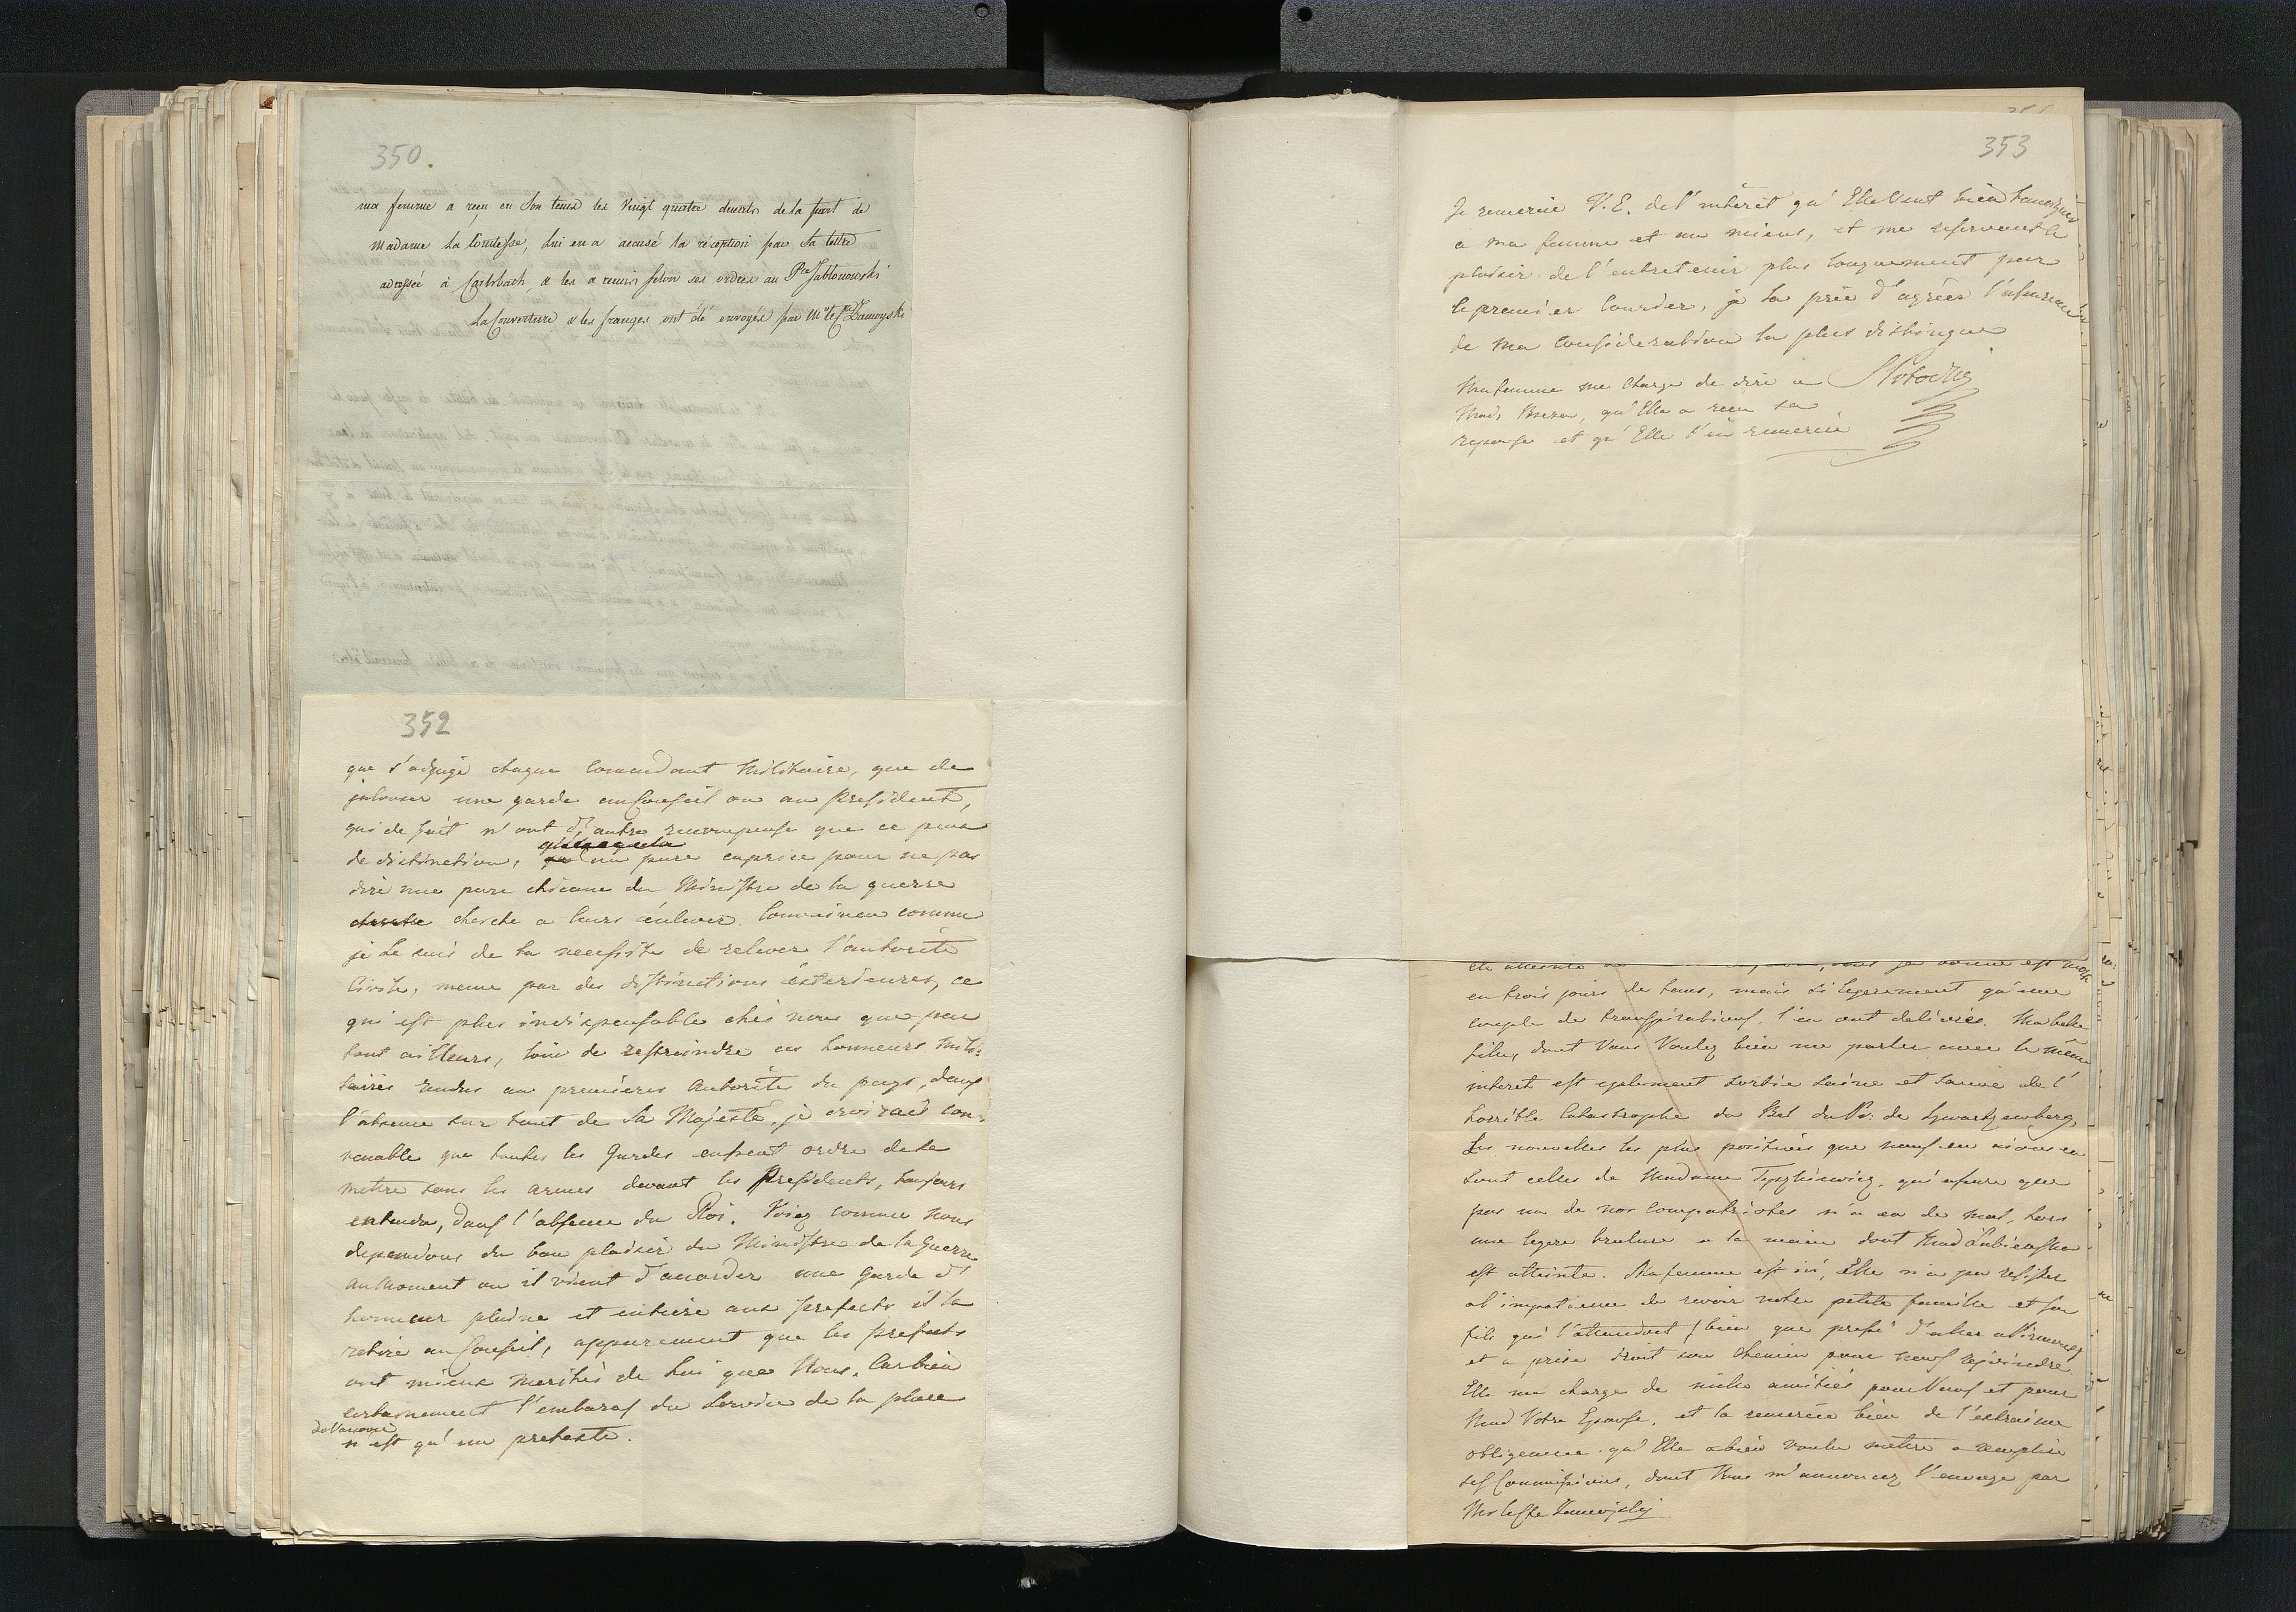 350.
ma femme a reçu en Son tems les Vingt quatre ducats de la part de
Madame La Comtesse, lui en a accusé la réception par Sa lettre
adressée à Carlsbach, & les a remis selon ses ordres au Pce Jablonowski
La Couverture & les franges ont été envoyés par Mr le Cte Zamoyski
352
que s'adjuge chaque Comendant Militaire, que de
jalouser une garde au Conseil ou au President,
qui de fait n'ont d'autre recompense que ce peux
de distinction, un pure caprice pour ne pas
dire une pure chicane du Ministre de la guerre
cherche cherche a leurs enlever. Convaincu comme
je Le suis de la necessité de relever l'autorité
Civile, meme par des distinctions exterieures, ce
qui est plus indispensable chés nous que par
tout ailleurs, loin de restreindre ces honneurs Mili:
taires rendus au premieres Autorités du pays, dans
l'absence sur tout de Sa Majesté, je croirais con:
venable que toutes les Gardes eussent ordre de se
mettre sous les armes devant les Presidents, toujours
entendu, dans l'absence du Roi. Voiez comme nous
dependons du bon plaisir du Ministre de la Guerre
Au Moment ou il vient d'accorder une Garde d'
honneur pleine et entiere aux prefects il la
retire au Conseil, apparement que les prefects
ont mieux merités de lui que Nous. Car bien
certainement l'embaras du Service de la place
de Varsovie
n'est qu'un pretexte.
353
Je remercie V.E. de l'intéret qu'Elle Veut bien temoigner
a ma femme et au miens, et me reservant le
plaisir de l'entretenir plus longuement par
le premier Courier, je la prie d'agréer l'assurance
de ma Consideration la plus distinguée
SPotocki
Ma femme me Charge de dire a
Mad. Breza, qu'Elle a reçu sa
reponse et qu'Elle l'en remercie
en trois jours de tems, mais si legerement qu'une
couple de transpirations l'en ont delivrés. Ma belle
fille, dont Vous Voulez bien me parler avec le même
interet est egalement sortie saine et sauve de l'
horrible Catastrophe du Bal du Pr: de Szwartzenberg,
Les nouvelles les plus positives que nous en aions eu
sont celles de Madame Tyszkiewicz, qui assure que
pas un de nos Compatriotes n'a eu de mal, hors
une legere brulure a la main dont Mad Lubienska
est atteinte. Ma femme est ici, Elle n'a pu resister
a l'impatience de revoir notre petite famille et son
fils qui l'attendait / bien que pressé d'aller
et a prise droit son Chemin pour nous rejoindre.
Elle me charge de mille amitiés pour Vous et pour
Mad Votre Epouse, et la remercie bien de l'extreme
obligeance qu'Elle a bien voulu mettre a remplir
ses Commissions, dont Vous m'annoncez l'envoye par
Mr le Cte Zamoyski